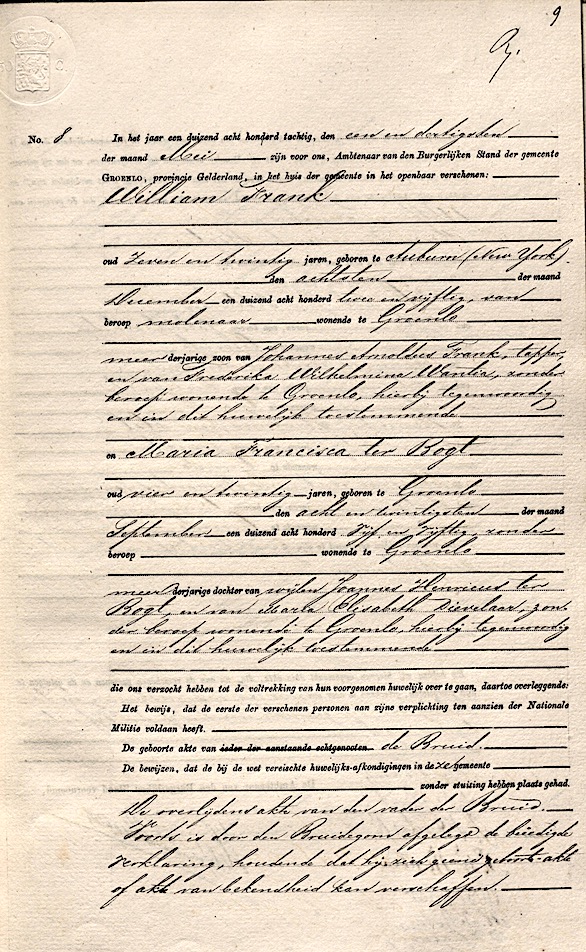 9
No. 8 In het jaar een duizend acht honderd tachtig, den een en dertigsten
der maand Mei zijn voor ons, Ambtenaar van den Burgerlijken Stand der gemeente
GROENLO, provincie Gelderland, in het huis der gemeente in het openbaar verschenen:
William Frank
oud zeven en twintig jaren, geboren te Auburn (New York)
den achtsten der maand
December een duizend acht honderd twee en vijftig, van
beroep molenaar wonende te Groenlo
meerderjarige zoon van Johannes Arnoldus Frank, tapper,
en van Frederika Wilhelmina Wantia, zonder
beroep wonende te Groenlo, hierbij tegenwoordig
en in dit huwelijk toestemmende
en Maria Francisca ter Bogt
oud vier en twintig jaren, geboren te Groenlo
den acht en twintigsten der maand
September een duizend acht honderd vijf en vijftig, zonder
beroep wonende te Groenlo
meerderjarige dochter van wijlen Joannes Henricus ter
Bogt, en van Maria Elisabeth Dievelaar, zon-
der beroep wonende te Groenlo, hierbij tegenwoordig
en in dit huwelijk toestemmende
die ons verzocht hebben tot de voltrekking van hun voorgenomen huwelijk over te gaan, daartoe overleggende:
Het bewijs, dat de eerste der verschenen personen aan zijne verplichting ten aanzien der Nationale
Militie voldaan heeft.
De geboorte akte van ieder der aanstaande echtgenooten de Bruid.
De bewijzen, dat de bij de wet vereischte huwelijks-afkondigingen in deze gemeente
zonder stuiting hebben plaats gehad.
De overlijdens akte van den vader der Bruid.
Voorts is door den Bruidegom afgelegd de beëedigde
verklaring, houdende dat hij zich geene geboorte-akte
of akte van bekendheid kan verschaffen.